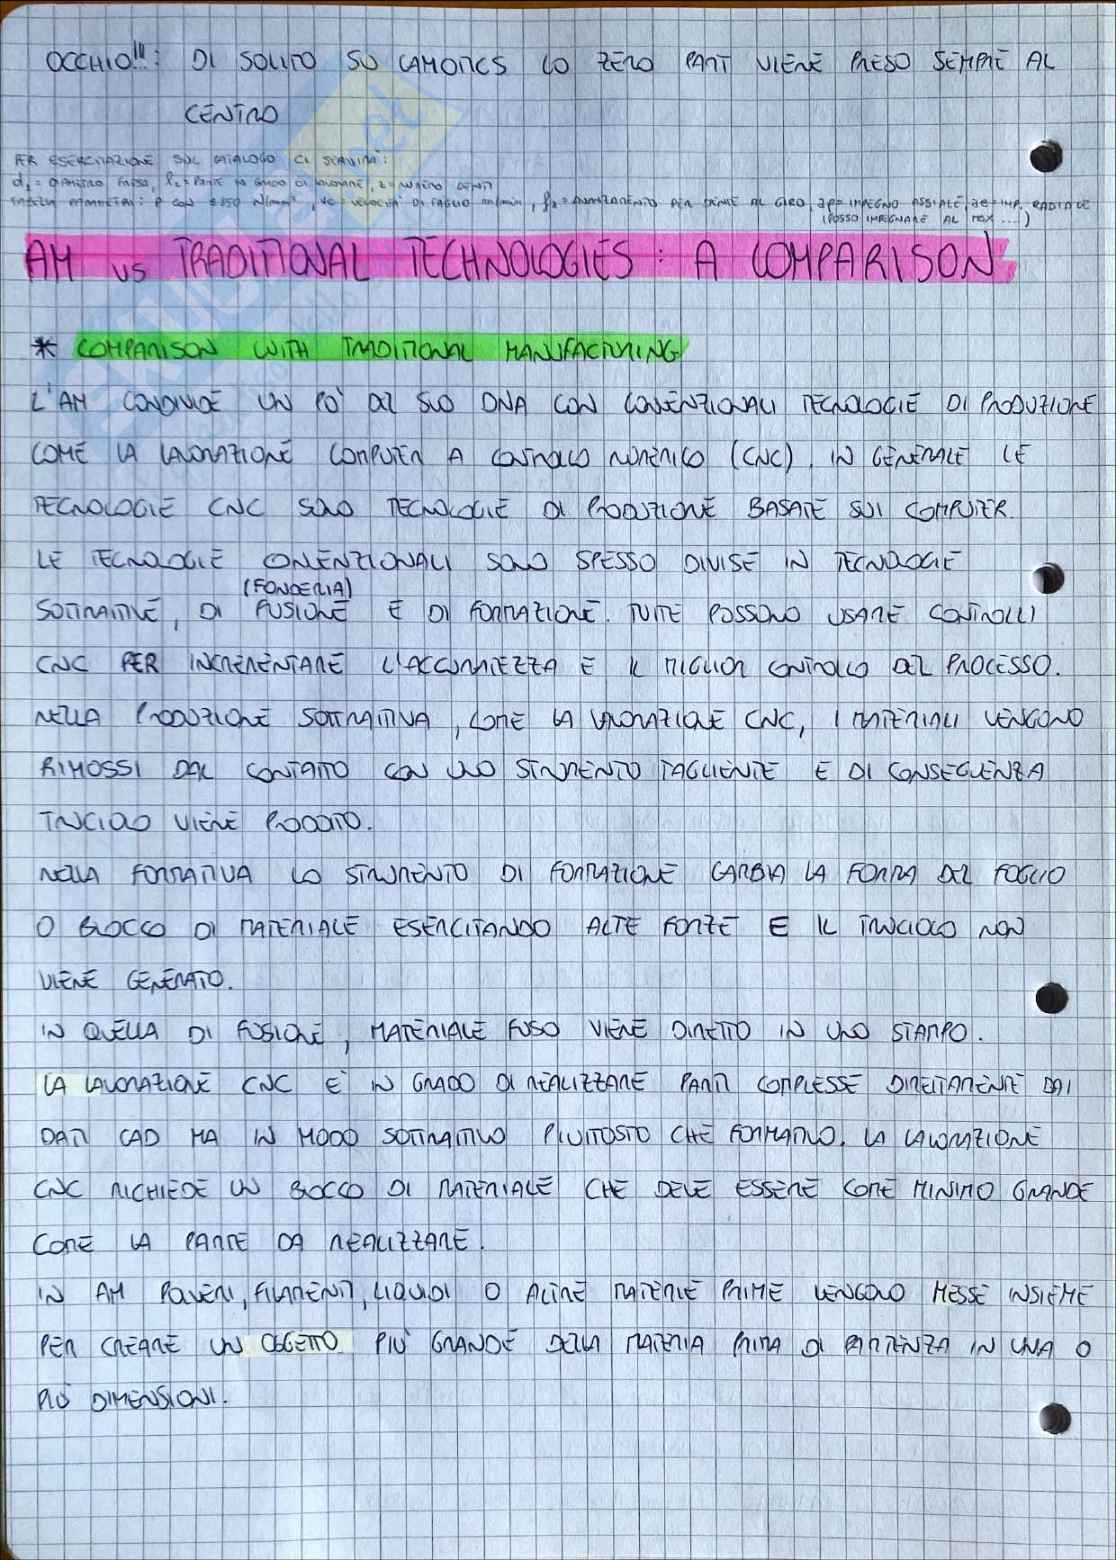 OCCHIO!!!: DI SOLITO SU CAMOTICS LO ZERO PART VIENE PRESO SEMPRE AL
CENTRO
PER ESERCITAZIONE SUL CATALOGO CI SERVIRA':
d1 = DIAMETRO FRESA, l2 = PARTE IN GRADO DI LAVORARE, z = NUMERO DENTI
P CON 850 N/mm², vc = VELOCITA' DI TAGLIO m/min, fz = AVANZAMENTO PER DENTE AL GIRO, ap = IMPEGNO ASSIALE, ae = IMP. RADIALE
(POSSO IMPEGNARE AL MAX ...)
AM vs TRADITIONAL TECHNOLOGIES: A COMPARISON
* COMPARISON WITH TRADITIONAL MANUFACTURING
L'AM CONDIVIDE UN PO' DEL SUO DNA CON CONVENZIONALI TECNOLOGIE DI PRODUZIONE
COME LA LAVORAZIONE COMPUTER A CONTROLLO NUMERICO (CNC). IN GENERALE LE
TECNOLOGIE CNC SONO TECNOLOGIE DI PRODUZIONE BASATE SUI COMPUTER.
LE TECNOLOGIE CONVENZIONALI SONO SPESSO DIVISE IN TECNOLOGIE
(FONDERIA)
SOTTRATTIVE, DI FUSIONE E DI FORMAZIONE. TUTTE POSSONO USARE CONTROLLI
CNC PER INCREMENTARE L'ACCURATEZZA E IL MIGLIOR CONTROLLO DEL PROCESSO.
NELLA PRODUZIONE SOTTRATTIVA, COME LA LAVORAZIONE CNC, I MATERIALI VENGONO
RIMOSSI DAL CONTATTO CON UNO STRUMENTO TAGLIENTE E DI CONSEGUENZA
TRUCIOLO VIENE PRODOTTO.
NELLA FORMATIVA LO STRUMENTO DI FORMAZIONE CAMBIA LA FORMA DEL FOGLIO
O BLOCCO DI MATERIALE ESERCITANDO ALTE FORZE E IL TRUCIOLO NON
VIENE GENERATO.
IN QUELLA DI FUSIONE, MATERIALE FUSO VIENE DIRETTO IN UNO STAMPO.
LA LAVORAZIONE CNC E' IN GRADO DI REALIZZARE PARTI COMPLESSE DIRETTAMENTE DAI
DATI CAD MA IN MODO SOTTRATTIVO PIUTTOSTO CHE FORMATIVO. LA LAVORAZIONE
CNC RICHIEDE UN BLOCCO DI MATERIALE CHE DEVE ESSERE COME MINIMO GRANDE
COME LA PARTE DA REALIZZARE.
IN AM POLVERI, FILAMENTI, LIQUIDI O ALTRE MATERIE PRIME VENGONO MESSE INSIEME
PER CREARE UN OGGETTO PIU' GRANDE DELLA MATERIA PRIMA DI PARTENZA IN UNA O
PIÙ DIMENSIONI.